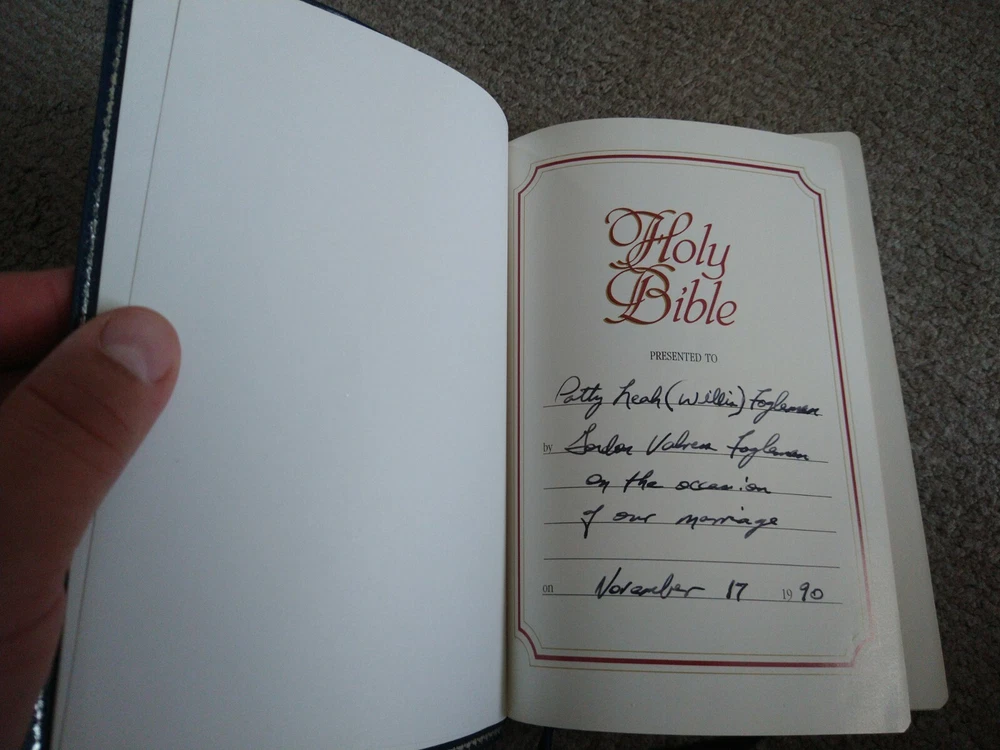 Holy
Bible
PRESENTED TO
Patty Leah (Willis) Fogleman
by Gordon Fogleman
on the occasion
of our marriage
on November 17 1990